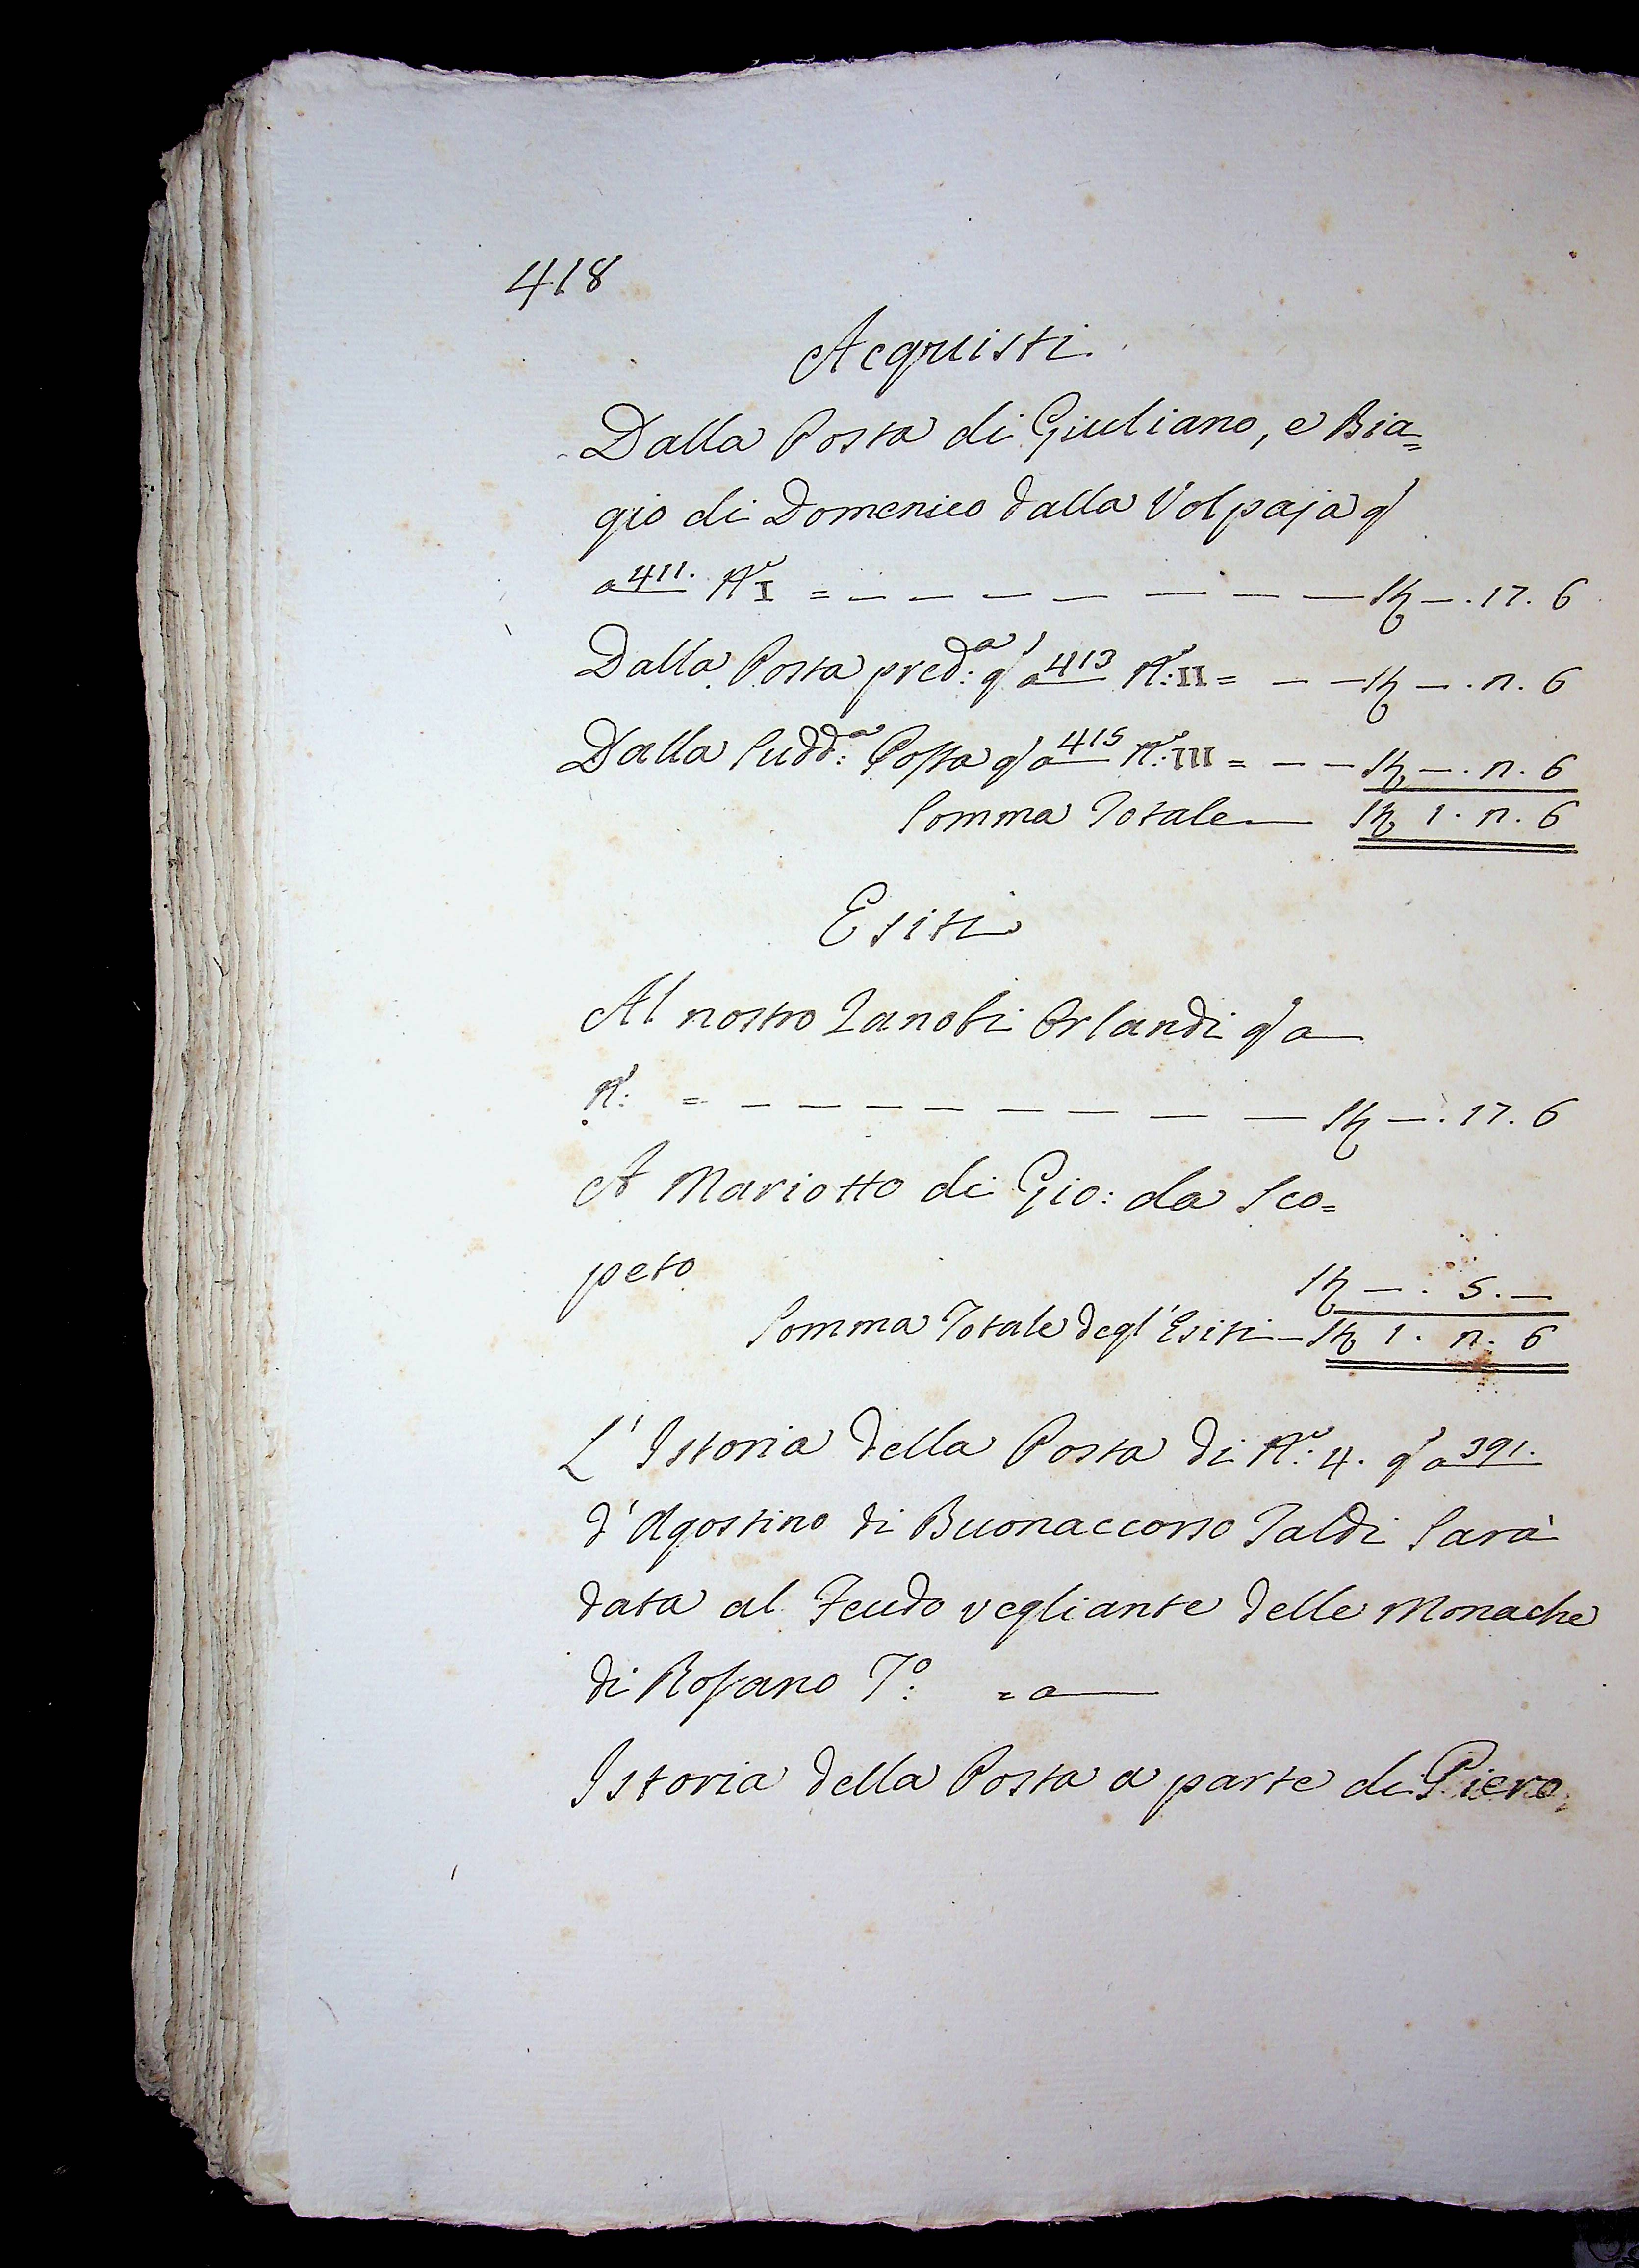 418
Acquisti.
Dalla Posta di Giuliano, e Bia=
gio di Domenico dalla Volpaja q.
a 411. N.º I = — — — — — — — St —. 17. 6
Dalla Posta pred:ª q a 413 N.º: II = — — St —. n. 6
Dalla Sudd:ª Posta q a 415 N.º: III = — — St —. n. 6
Somma Totale — St 1. n. 6
Esiti
Al nostro Zanobi Orlandi q a
N.º: = — — — — — — — — St —. 17. 6
A Mariotto di Gio: da Sco=
peto St —. 5. —
Somma Totale degl' Esiti — St 1. n. 6
L' Istoria della Posta di N.º: 4. q a 391.
d' Agostino di Buonaccorso Taldi Sarà
data al Feudo vegliante delle Monache
di Rosano T.º: = a
Istoria della Posta a parte di Piero,